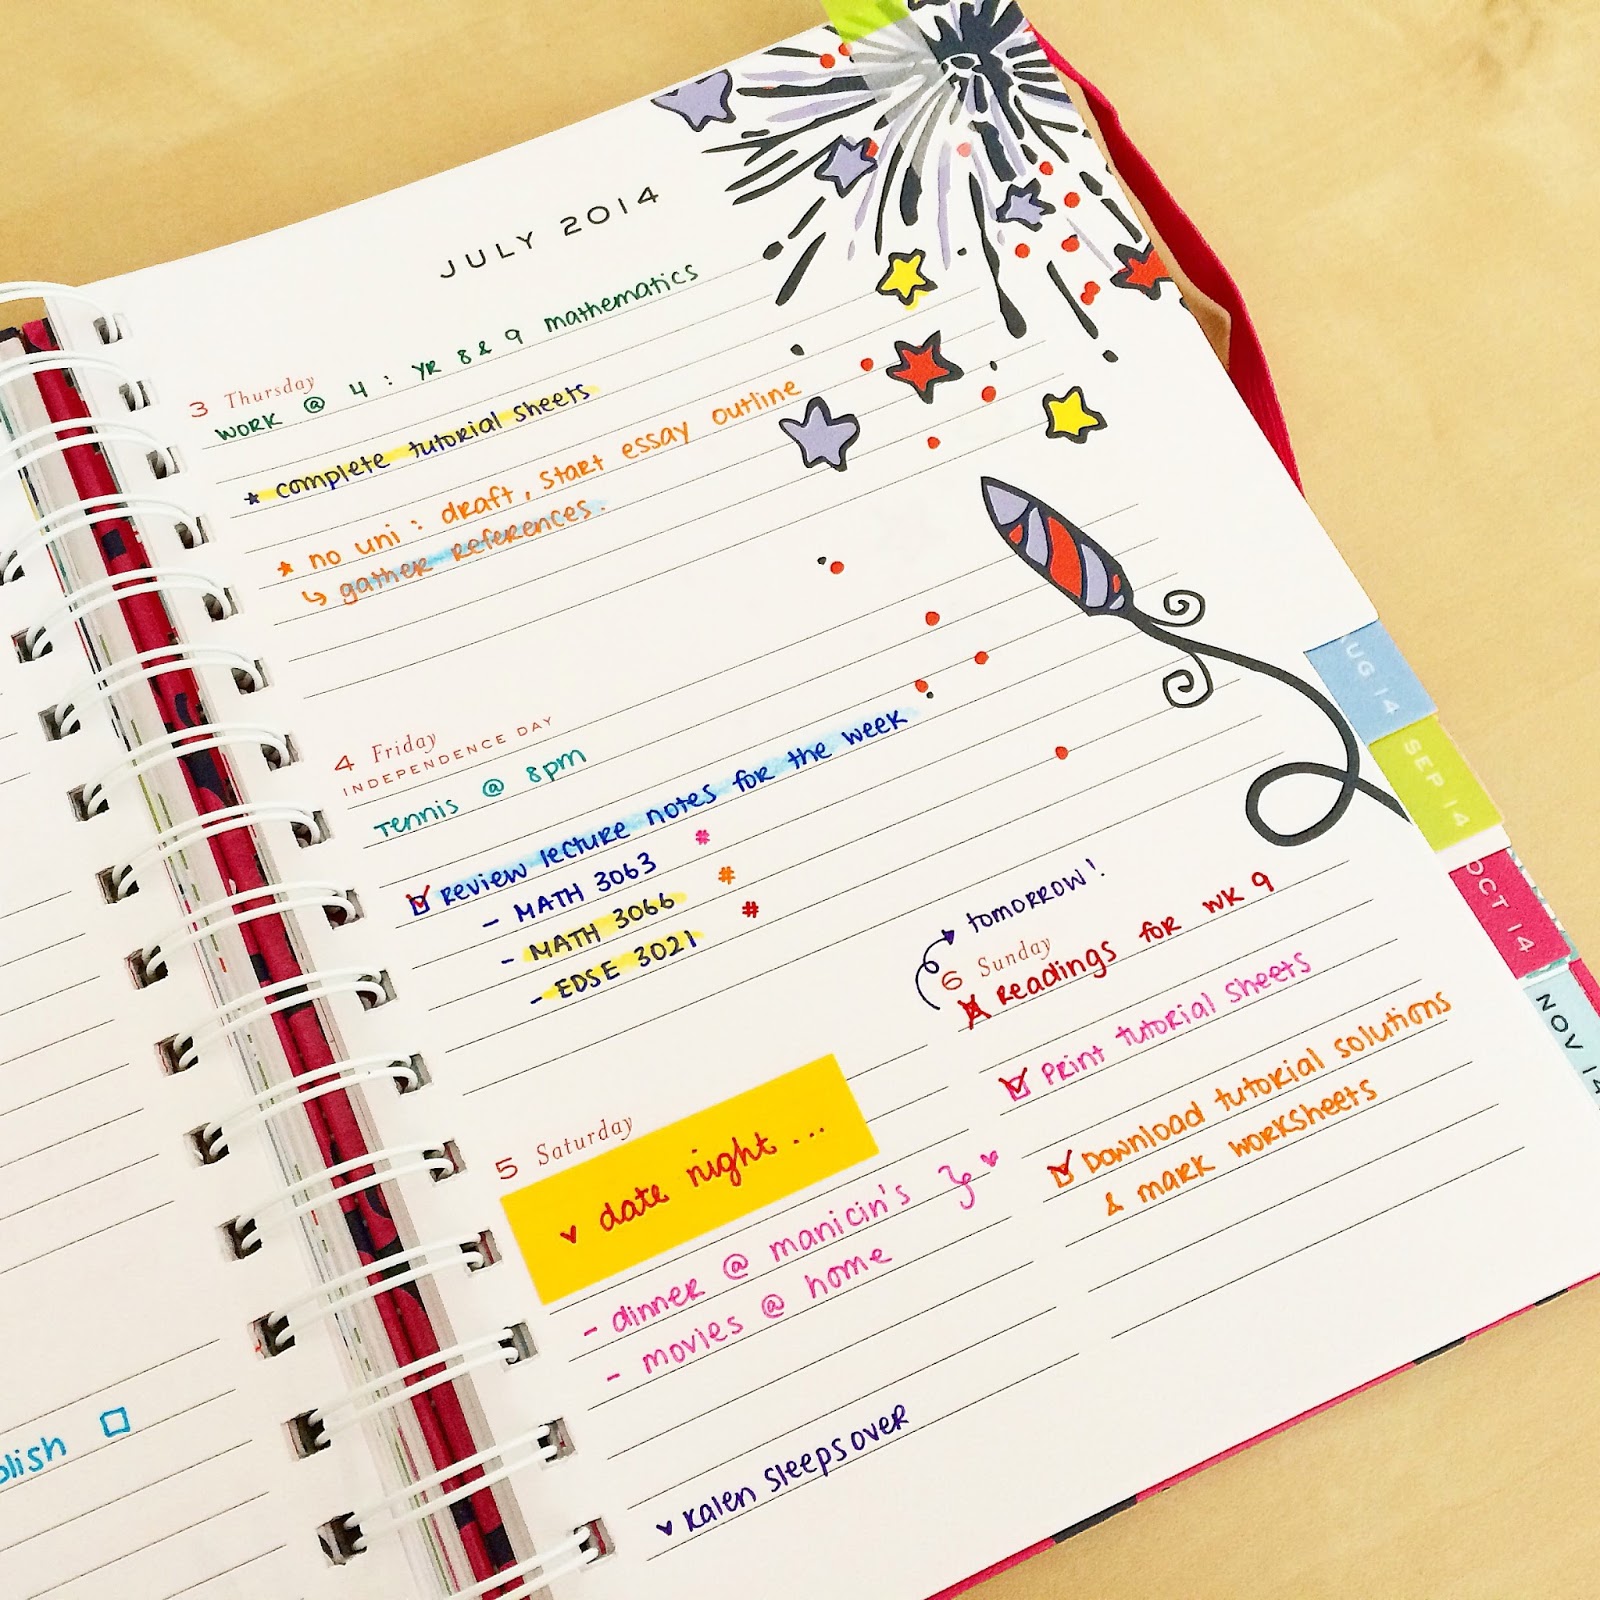 JULY 2014
3 Thursday
work @ 4 : YR 8 & 9 mathematics
* complete tutorial sheets
* no uni : draft, start essay outline
↳ gather references.
4 Friday
INDEPENDENCE DAY
Tennis @ 8pm
☑ Review lecture notes for the week
- MATH 3063 #
- MATH 3066 #
- EDSE 3021 #
5 Saturday
♥ date night ...
- dinner @ manicin's ♥
- movies @ home
♥ Kalen sleepsover
tomorrow!
6 Sunday
Readings for wk 9
☑ Print tutorial sheets
☑ Download tutorial solutions
& mark worksheets
UG 14
SEP 14
OCT 14
NOV 14
lish ☐